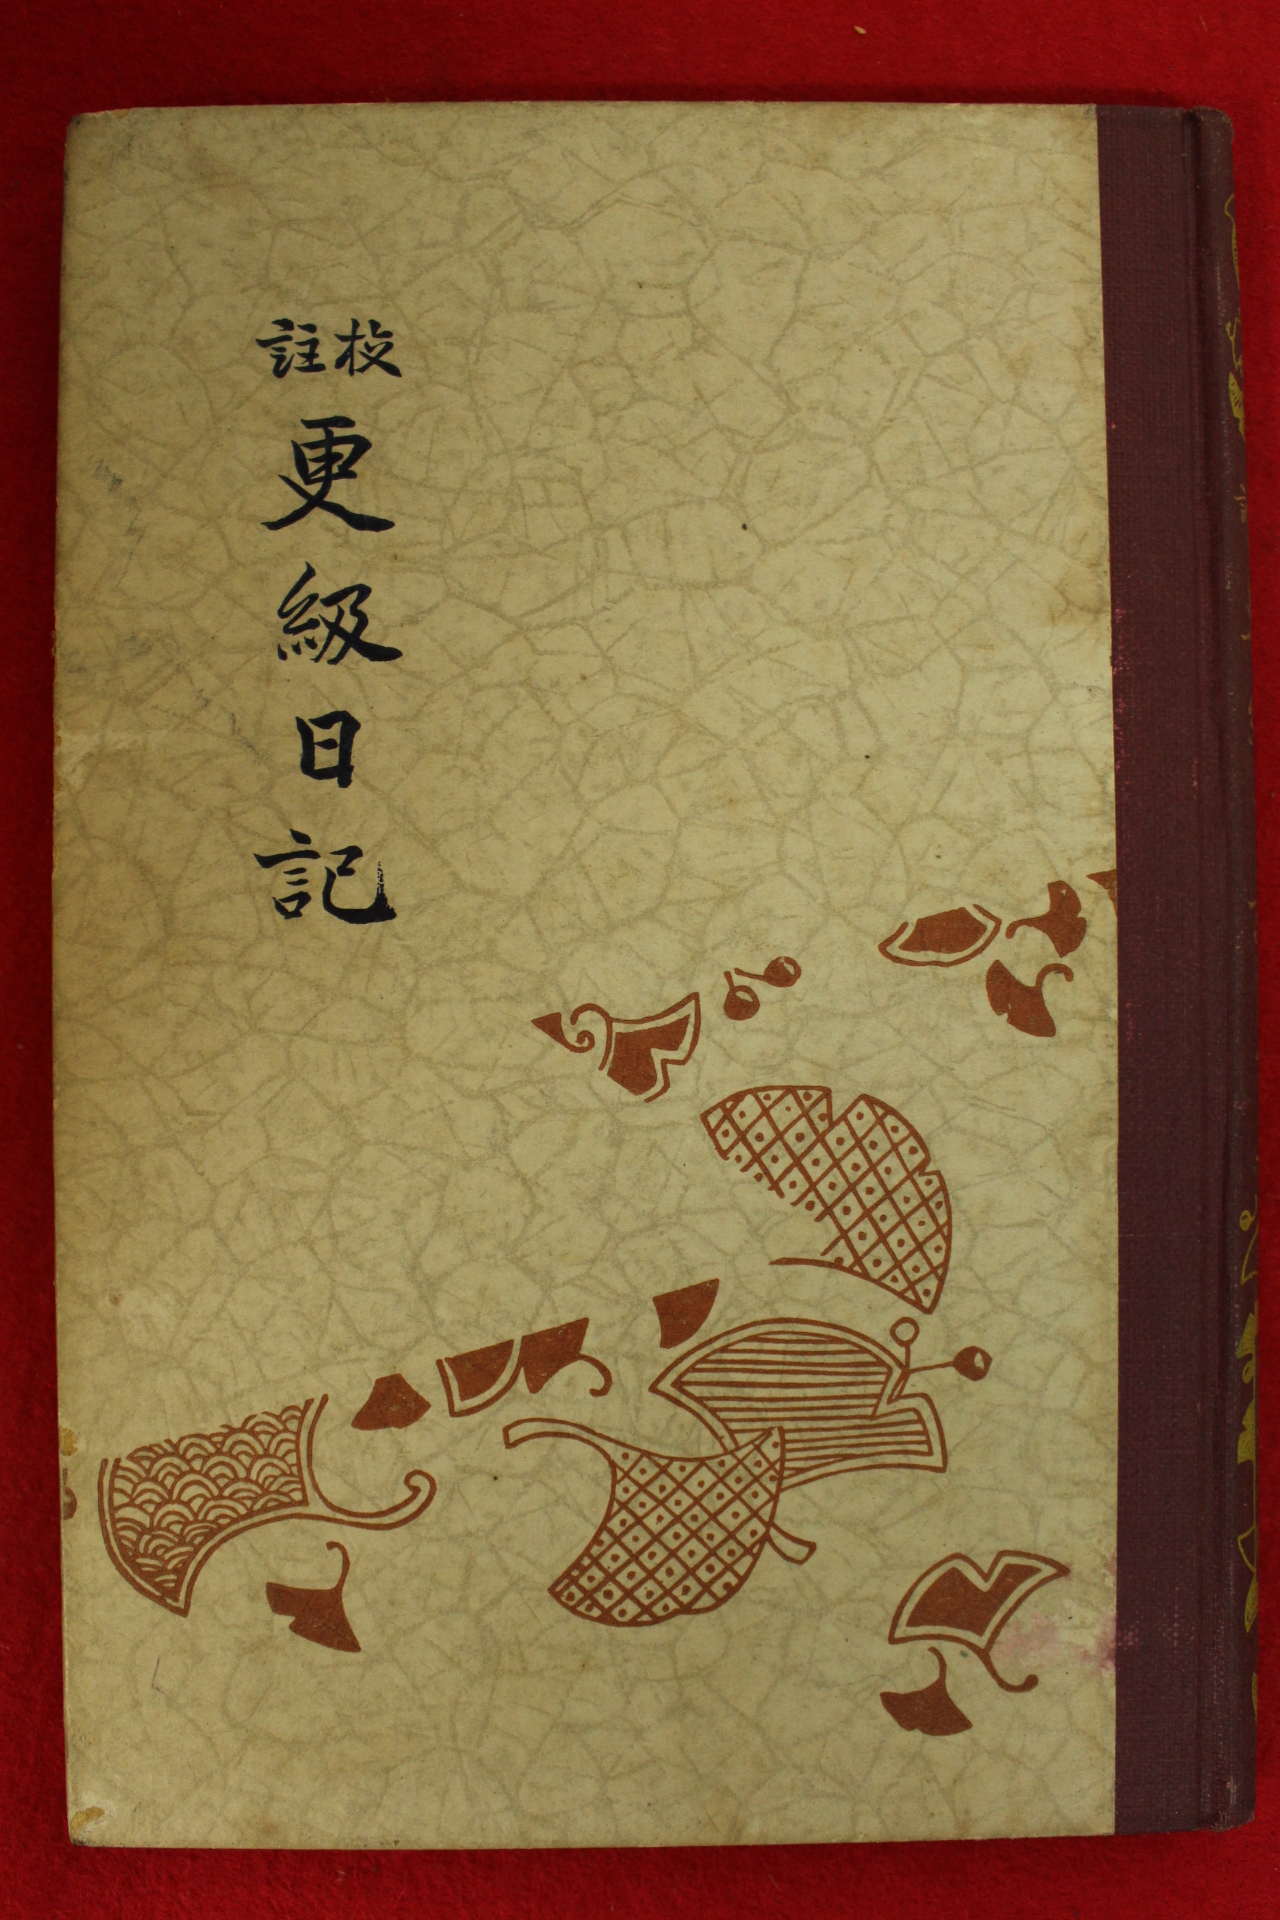 校註
更級日記